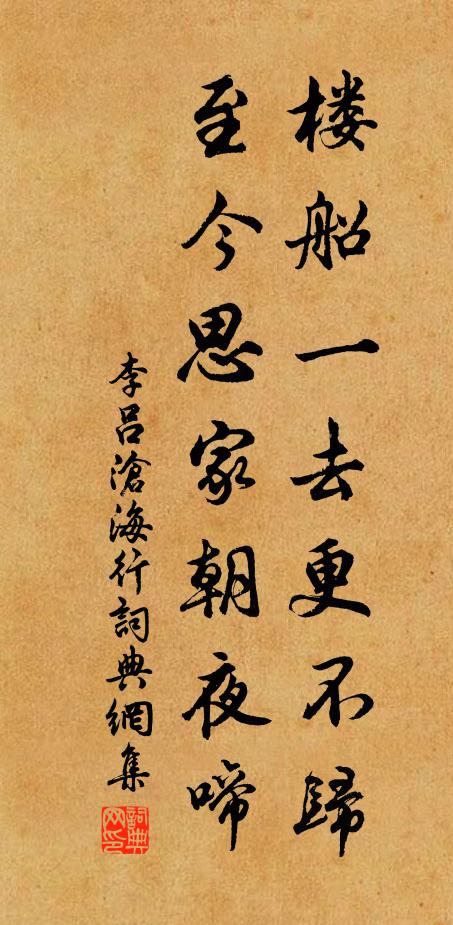 楼船一去更不歸
至今思家朝夜啼
李吕滄海行詞典網集
詞典网印